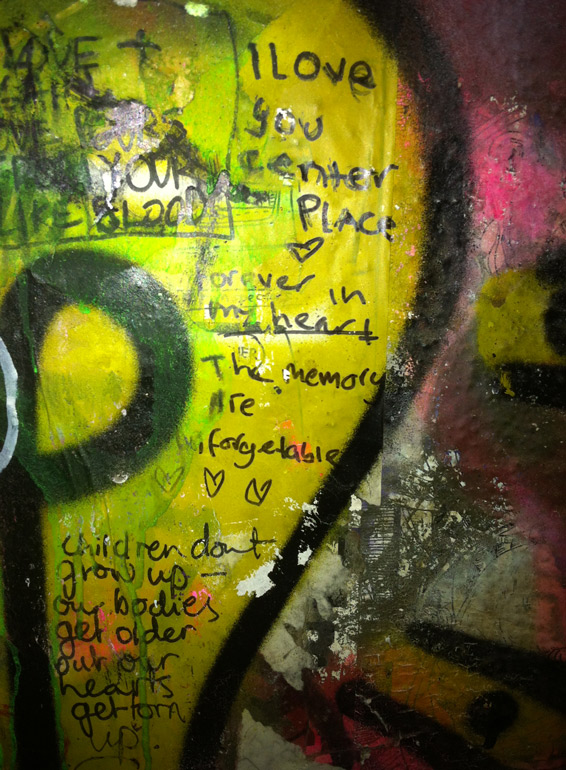 LOVE
YOUR
BLOOD
I Love
you
center
PLACE
forever in
my heart
The memory
Are
forgetable
children dont
grow up –
our bodies
get older
but our
hearts
get torn
up.